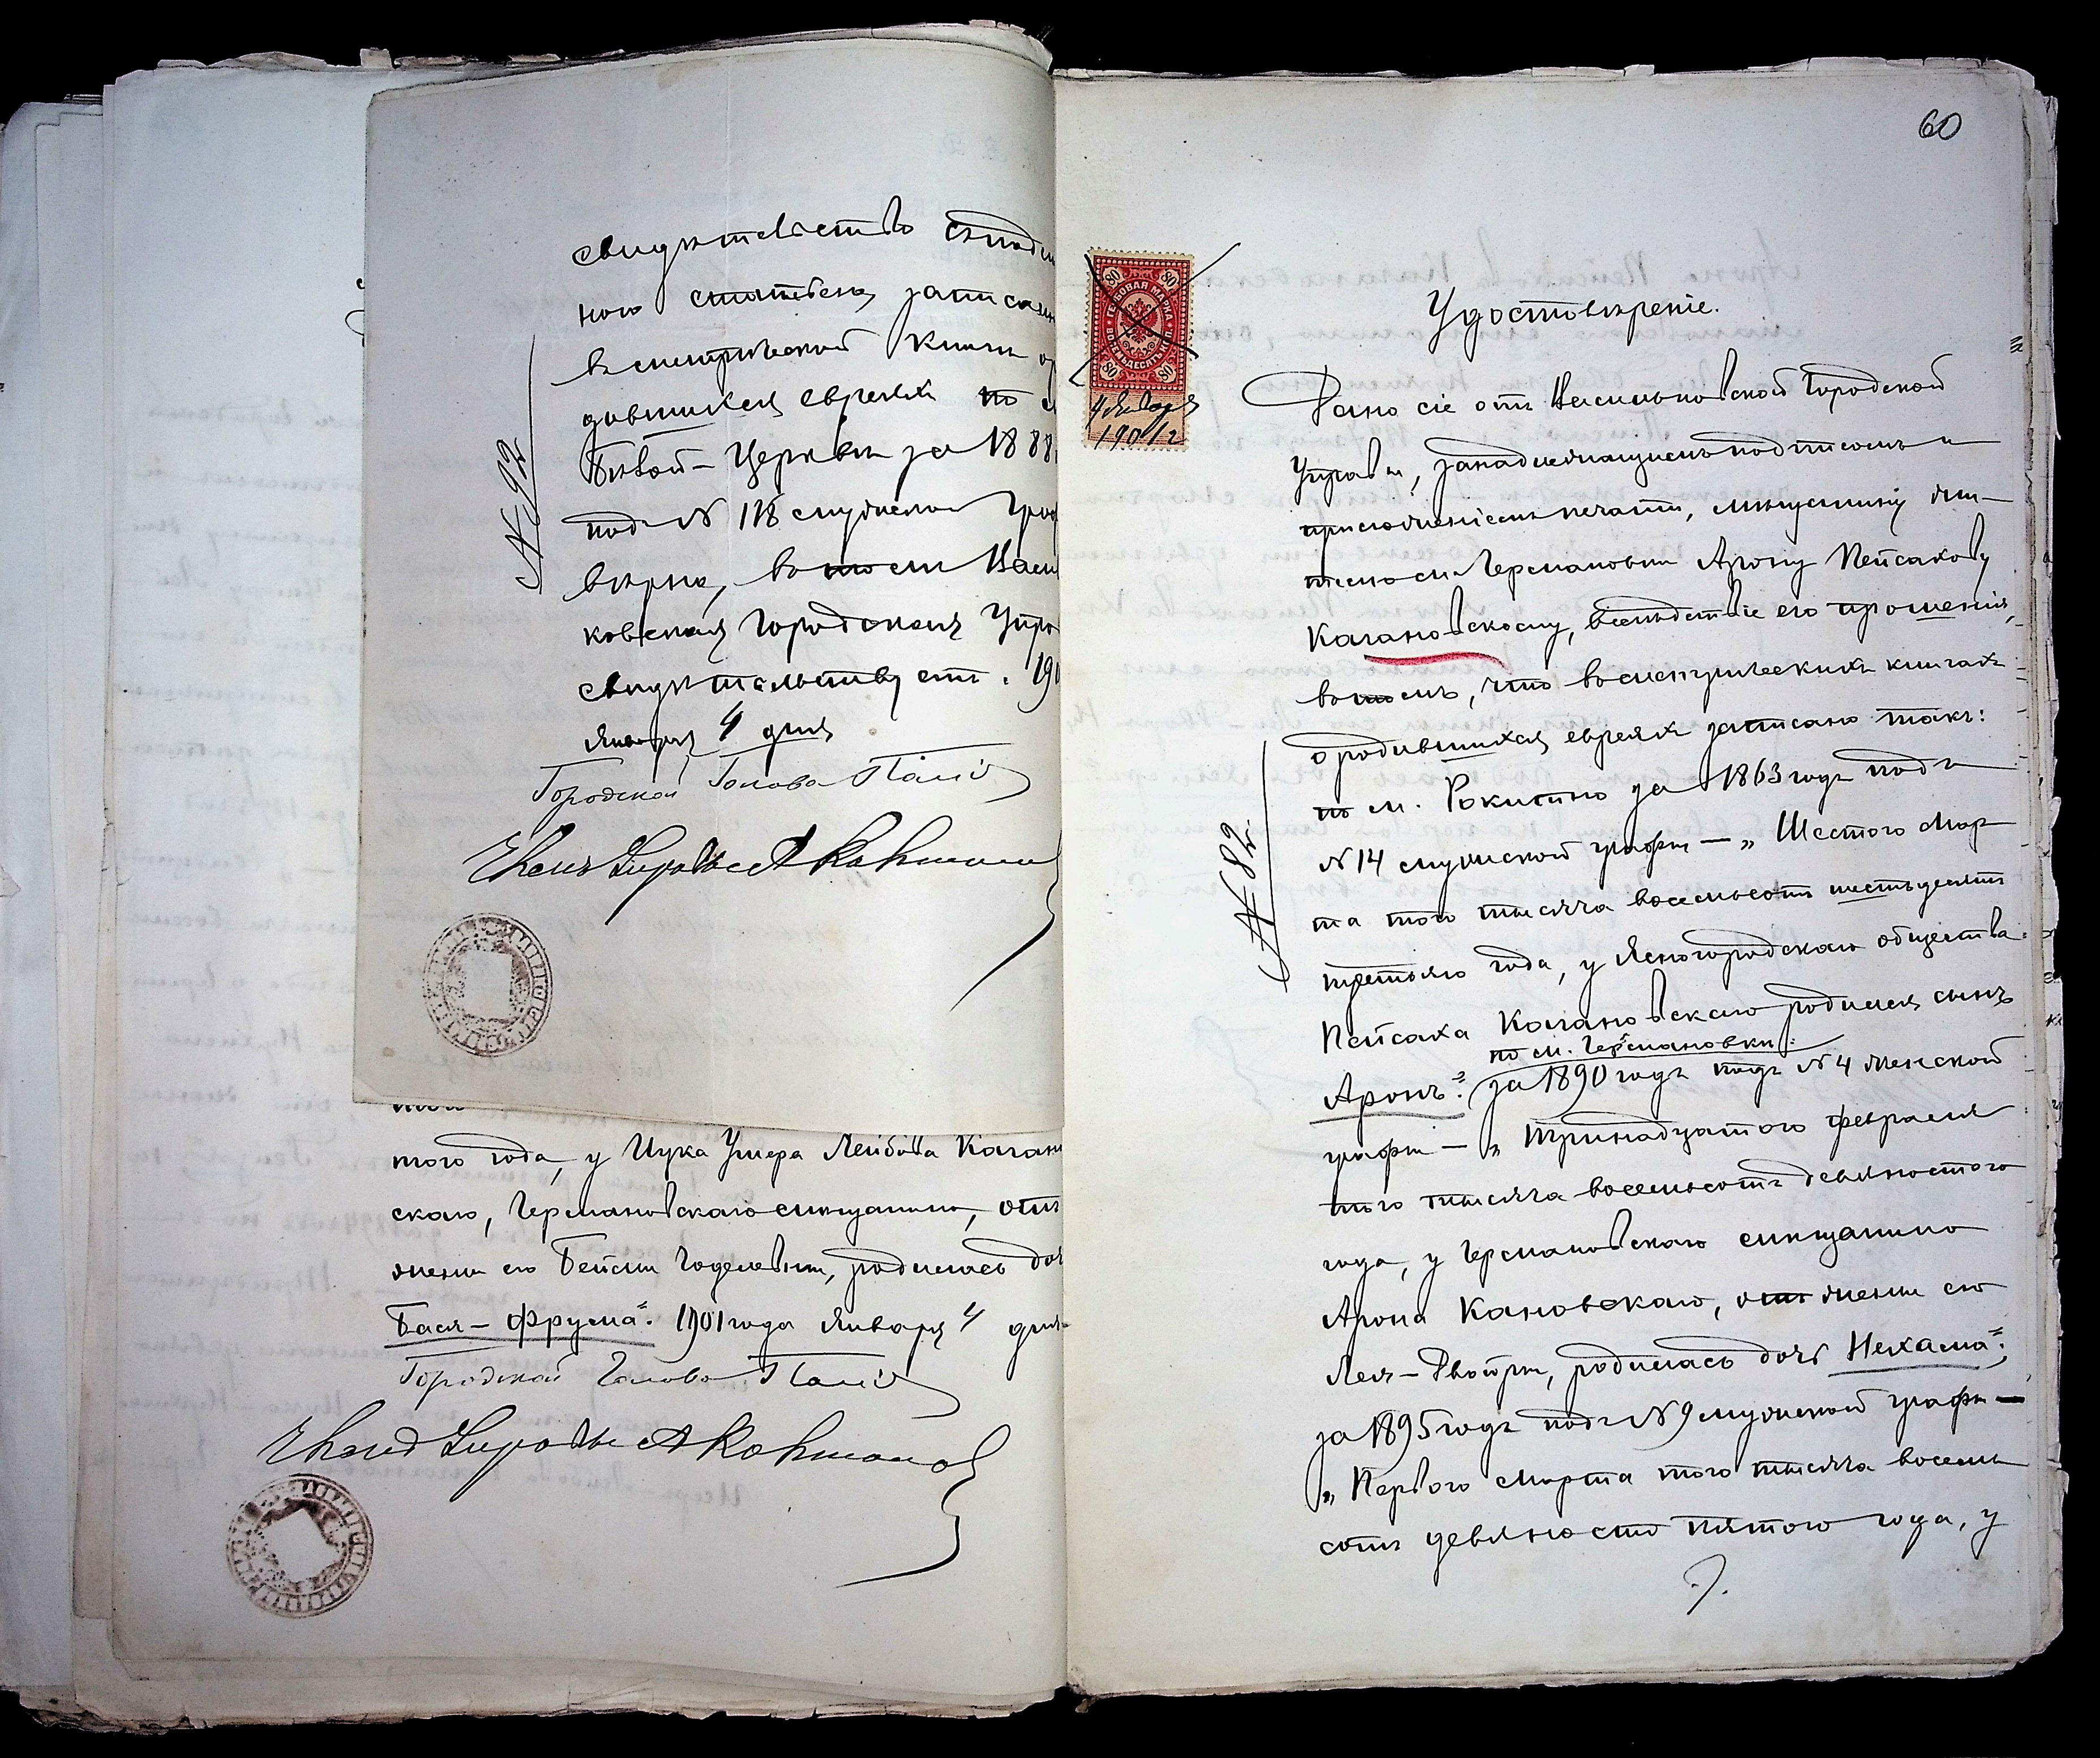 свидѣтельство
ного записан
въ метрической книгѣ о
дившихся евреяхъ по м
Бѣлой-Церкви за 188
подъ № 118 мужской граф
вѣрно, въ томъ Васи
ковская Городская Упра
свидѣтельствуетъ. 190
Января 4 дня
Городской Голова
Членъ Управы
№ 92
того года, у Ицка Умера Лейбова Кагано
скаго, Германовскаго мѣщанина, отъ
жены его Бейлы Годелевны, родилась доч
Бася-Фрума". 1901 года Января 4 дня
Городской Голова
Членъ Управы
60
80 80
ГЕРБОВАЯ МАРКА
ВОСЕМЬДЕСЯТЪ К.
80 80
4 Января
1901 г
Удостовѣреніе.
Дано сіе отъ Васильковской Городской
Управы, за надлежащимъ подписомъ и
приложеніемъ печати, мѣщанину мѣ-
стечка Германовки Арону Пейсахову
Кагановскому, вслѣдствіе его прошенія,
въ томъ, что въ метрическихъ книгахъ
о родившихся евреяхъ записано такъ:
по м. Рокитно за 1863 годъ подъ
№ 14 мужской графы — „Шестого Мар
та того тысяча восемьсотъ шестьдесятъ
третьяго года, у Ясногородскаго общества
Пейсаха Кагановскаго родился сынъ
по м. Германовки:
Аронъ". за 1890 годъ подъ № 4 женской
графы — „Тринадцатого февраля
того тысяча восемьсотъ девяностого
года, у Германовскаго мѣщанина
Арона Кановскаго, отъ жены его
Леи-Двойры, родилась дочь Нехама";
за 1895 годъ подъ № 9 мужской графы —
„Перваго Марта того тысяча восемь
сотъ девяносто пятого года, у
№ 82